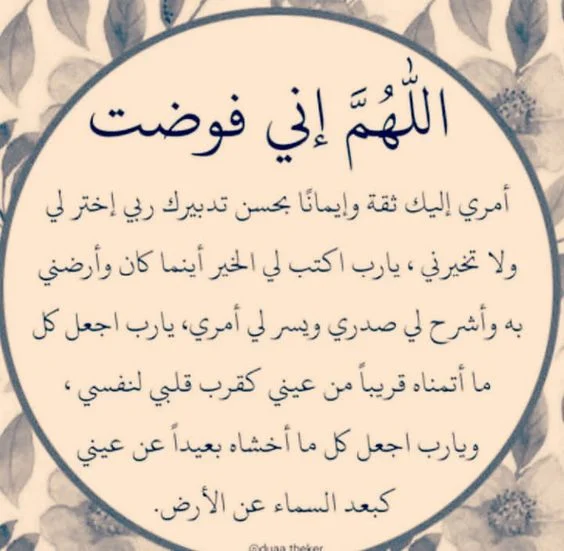 اللّٰهُمَّ إني فوضت
أمري إليك ثقة وإيمانًا بحسن تدبيرك ربي إختر لي
ولا تخيرني ، يارب اكتب لي الخير أينما كان وأرضني
به وأشرح لي صدري ويسر لي أمري، يارب اجعل كل
ما أتمناه قريباً من عيني كقرب قلبي لنفسي ،
ويارب اجعل كل ما أخشاه بعيداً عن عيني
كبعد السماء عن الأرض.
@duaa.theker